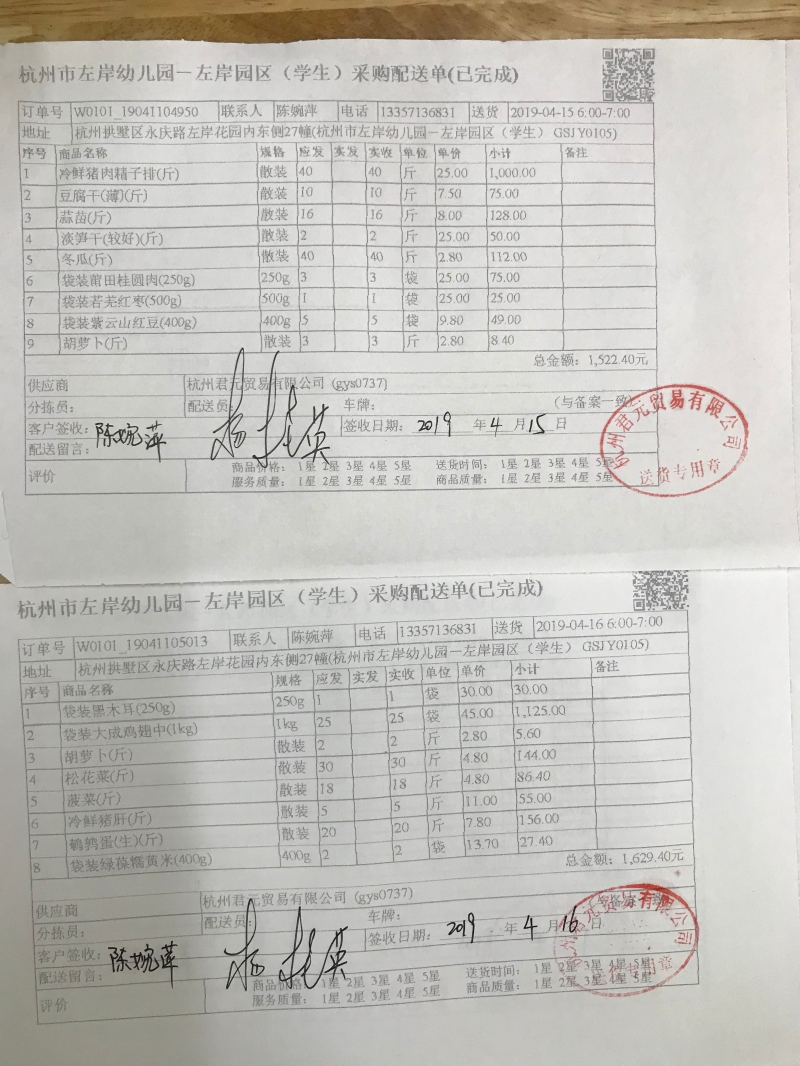 杭州市左岸幼儿园－左岸园区（学生）采购配送单(已完成)
订单号 W0101_19041104950 联系人 陈婉萍 电话 13357136831 送货 2019-04-15 6:00-7:00
地址 杭州拱墅区永庆路左岸花园内东侧27幢(杭州市左岸幼儿园－左岸园区（学生） GSJY0105)
序号 商品名称 规格 应发 实发 实收 单位 单价 小计 备注
1 冷鲜猪肉精子排(斤) 散装 40 40 斤 25.00 1,000.00
2 豆腐干(薄)(斤) 散装 10 10 斤 7.50 75.00
3 蒜苗(斤) 散装 16 16 斤 8.00 128.00
4 淡笋干(较好)(斤) 散装 2 2 斤 25.00 50.00
5 冬瓜(斤) 散装 40 40 斤 2.80 112.00
6 袋装莆田桂圆肉(250g) 250g 3 3 袋 25.00 75.00
7 袋装若羌红枣(500g) 500g 1 1 袋 25.00 25.00
8 袋装紫云山红豆(400g) 400g 5 5 袋 9.80 49.00
9 胡萝卜(斤) 散装 3 3 斤 2.80 8.40
总金额：1,522.40元
供应商 杭州君元贸易有限公司 (gys0737)
分拣员： 配送员： 车牌： (与备案一致)
客户签收： 陈婉萍 杨桂英 签收日期： 2019 年 4 月 15 日
配送留言：
评价 商品价格： 1星 2星 3星 4星 5星 送货时间： 1星 2星 3星 4星 5星
服务质量： 1星 2星 3星 4星 5星 商品质量： 1星 2星 3星 4星 5星
杭州君元贸易有限公司
送货专用章
杭州市左岸幼儿园－左岸园区（学生）采购配送单(已完成)
订单号 W0101_19041105013 联系人 陈婉萍 电话 13357136831 送货 2019-04-16 6:00-7:00
地址 杭州拱墅区永庆路左岸花园内东侧27幢(杭州市左岸幼儿园－左岸园区（学生） GSJY0105)
序号 商品名称 规格 应发 实发 实收 单位 单价 小计 备注
1 袋装黑木耳(250g) 250g 1 1 袋 30.00 30.00
2 袋装大成鸡翅中(1kg) 1kg 25 25 袋 45.00 1,125.00
3 胡萝卜(斤) 散装 2 2 斤 2.80 5.60
4 松花菜(斤) 散装 30 30 斤 4.80 144.00
5 菠菜(斤) 散装 18 18 斤 4.80 86.40
6 冷鲜猪肝(斤) 散装 5 5 斤 11.00 55.00
7 鹌鹑蛋(生)(斤) 散装 20 20 斤 7.80 156.00
8 袋装绿葆糯黄米(400g) 400g 2 2 袋 13.70 27.40
总金额：1,629.40元
供应商 杭州君元贸易有限公司 (gys0737)
分拣员： 配送员： 车牌：
客户签收： 陈婉萍 杨桂英 签收日期： 2019 年 4 月 16 日
配送留言：
评价 商品价格： 1星 2星 3星 4星 5星 送货时间： 1星 2星 3星 4星 5星
服务质量： 1星 2星 3星 4星 5星 商品质量： 1星 2星 3星 4星 5星
杭州君元贸易有限公司
送货专用章